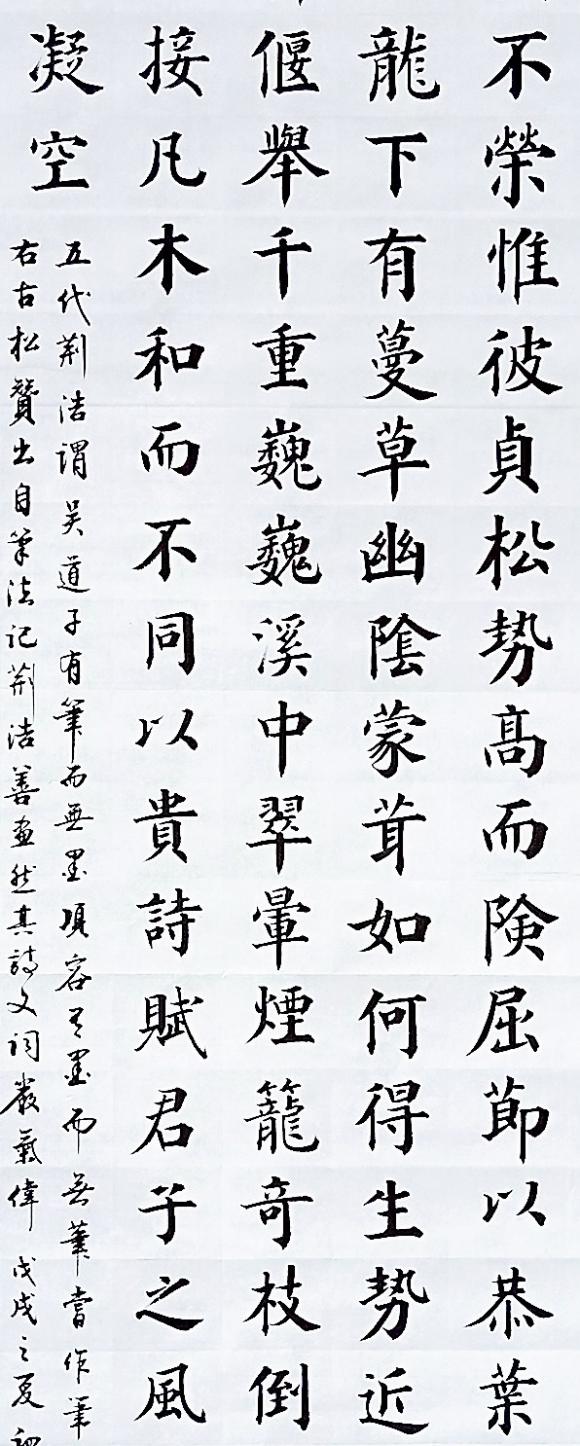 不榮惟彼貞松勢髙而険屈節以恭葉
龍下有蔓草幽陰蒙茸如何得生勢近
偃舉千重巍巍溪中翠暈煙籠奇枝倒
接凡木和而不同以貴詩賦君子之風
凝空
五代荆浩謂吴道子有筆而無墨項容有墨而無筆嘗作筆
右古松贊出自筆法記荆浩善畫然其詩文词嚴氣偉 戊戌之夏